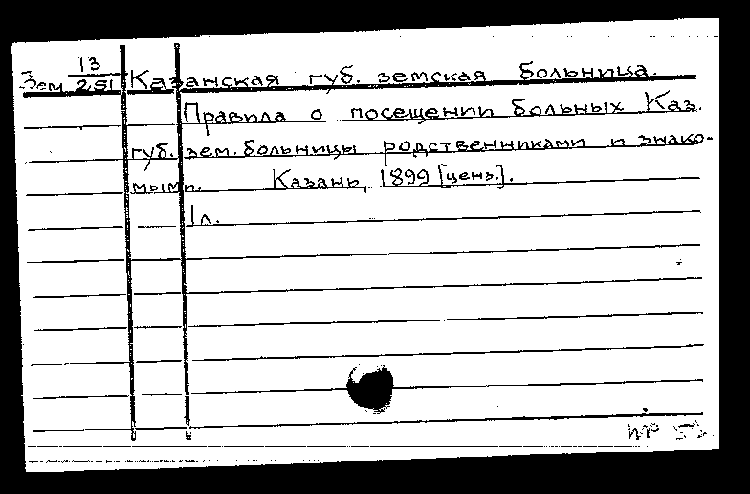 Зем 13/251 Казанская губ. земская больница.
Правила о посещении больных Каз.
губ. зем. больницы родственниками и знако-
мыми. Казань, 1899 [ценз.].
1 л.